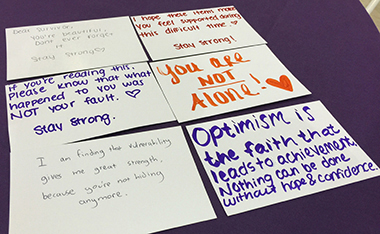 Dear Survivor,
You're beautiful.
Dont ever forget
it
Stay Strong♡
I hope these items make
you feel supported during
this difficult time.
Stay strong!
If you're reading this,
Please know that what
happened to you was
NOT your fault. ♡
Stay strong.
You are
NOT
Alone! ♥
I am finding that vulnerability
gives me great strength,
because you're not hiding
anymore.
Optimism is
the faith that
leads to achievement.
Nothing can be done
without hope & confidence.